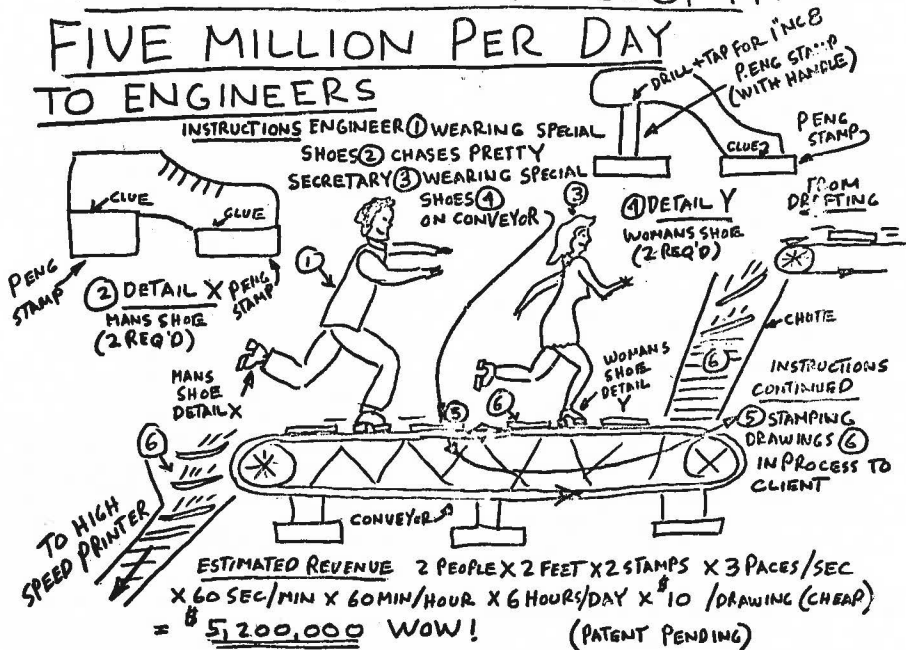 FIVE MILLION PER DAY
TO ENGINEERS
INSTRUCTIONS ENGINEER ① WEARING SPECIAL
SHOES ② CHASES PRETTY
SECRETARY ③ WEARING SPECIAL
SHOES ④
ON CONVEYOR
DRILL + TAP FOR 1"NC8
P.ENG STAMP
(WITH HANDLE)
GLUE
P ENG
STAMP
GLUE
GLUE
P ENG
STAMP
② DETAIL X
MANS SHOE
(2 REQ'D)
P ENG
STAMP
①
③
④ DETAIL Y
WOMANS SHOE
(2 REQ'D)
FROM
DRAFTING
CHUTE
⑥
MANS
SHOE
DETAIL X
WOMANS
SHOE
DETAIL
Y
⑤
⑥
INSTRUCTIONS
CONTINUED
⑤ STAMPING
DRAWINGS ⑥
IN PROCESS TO
CLIENT
⑥
TO HIGH
SPEED PRINTER
CONVEYOR
ESTIMATED REVENUE 2 PEOPLE X 2 FEET X 2 STAMPS X 3 PACES/SEC
X 60 SEC/MIN X 60 MIN/HOUR X 6 HOURS/DAY X $10 /DRAWING (CHEAP)
= $ 5,200,000 WOW!
(PATENT PENDING)